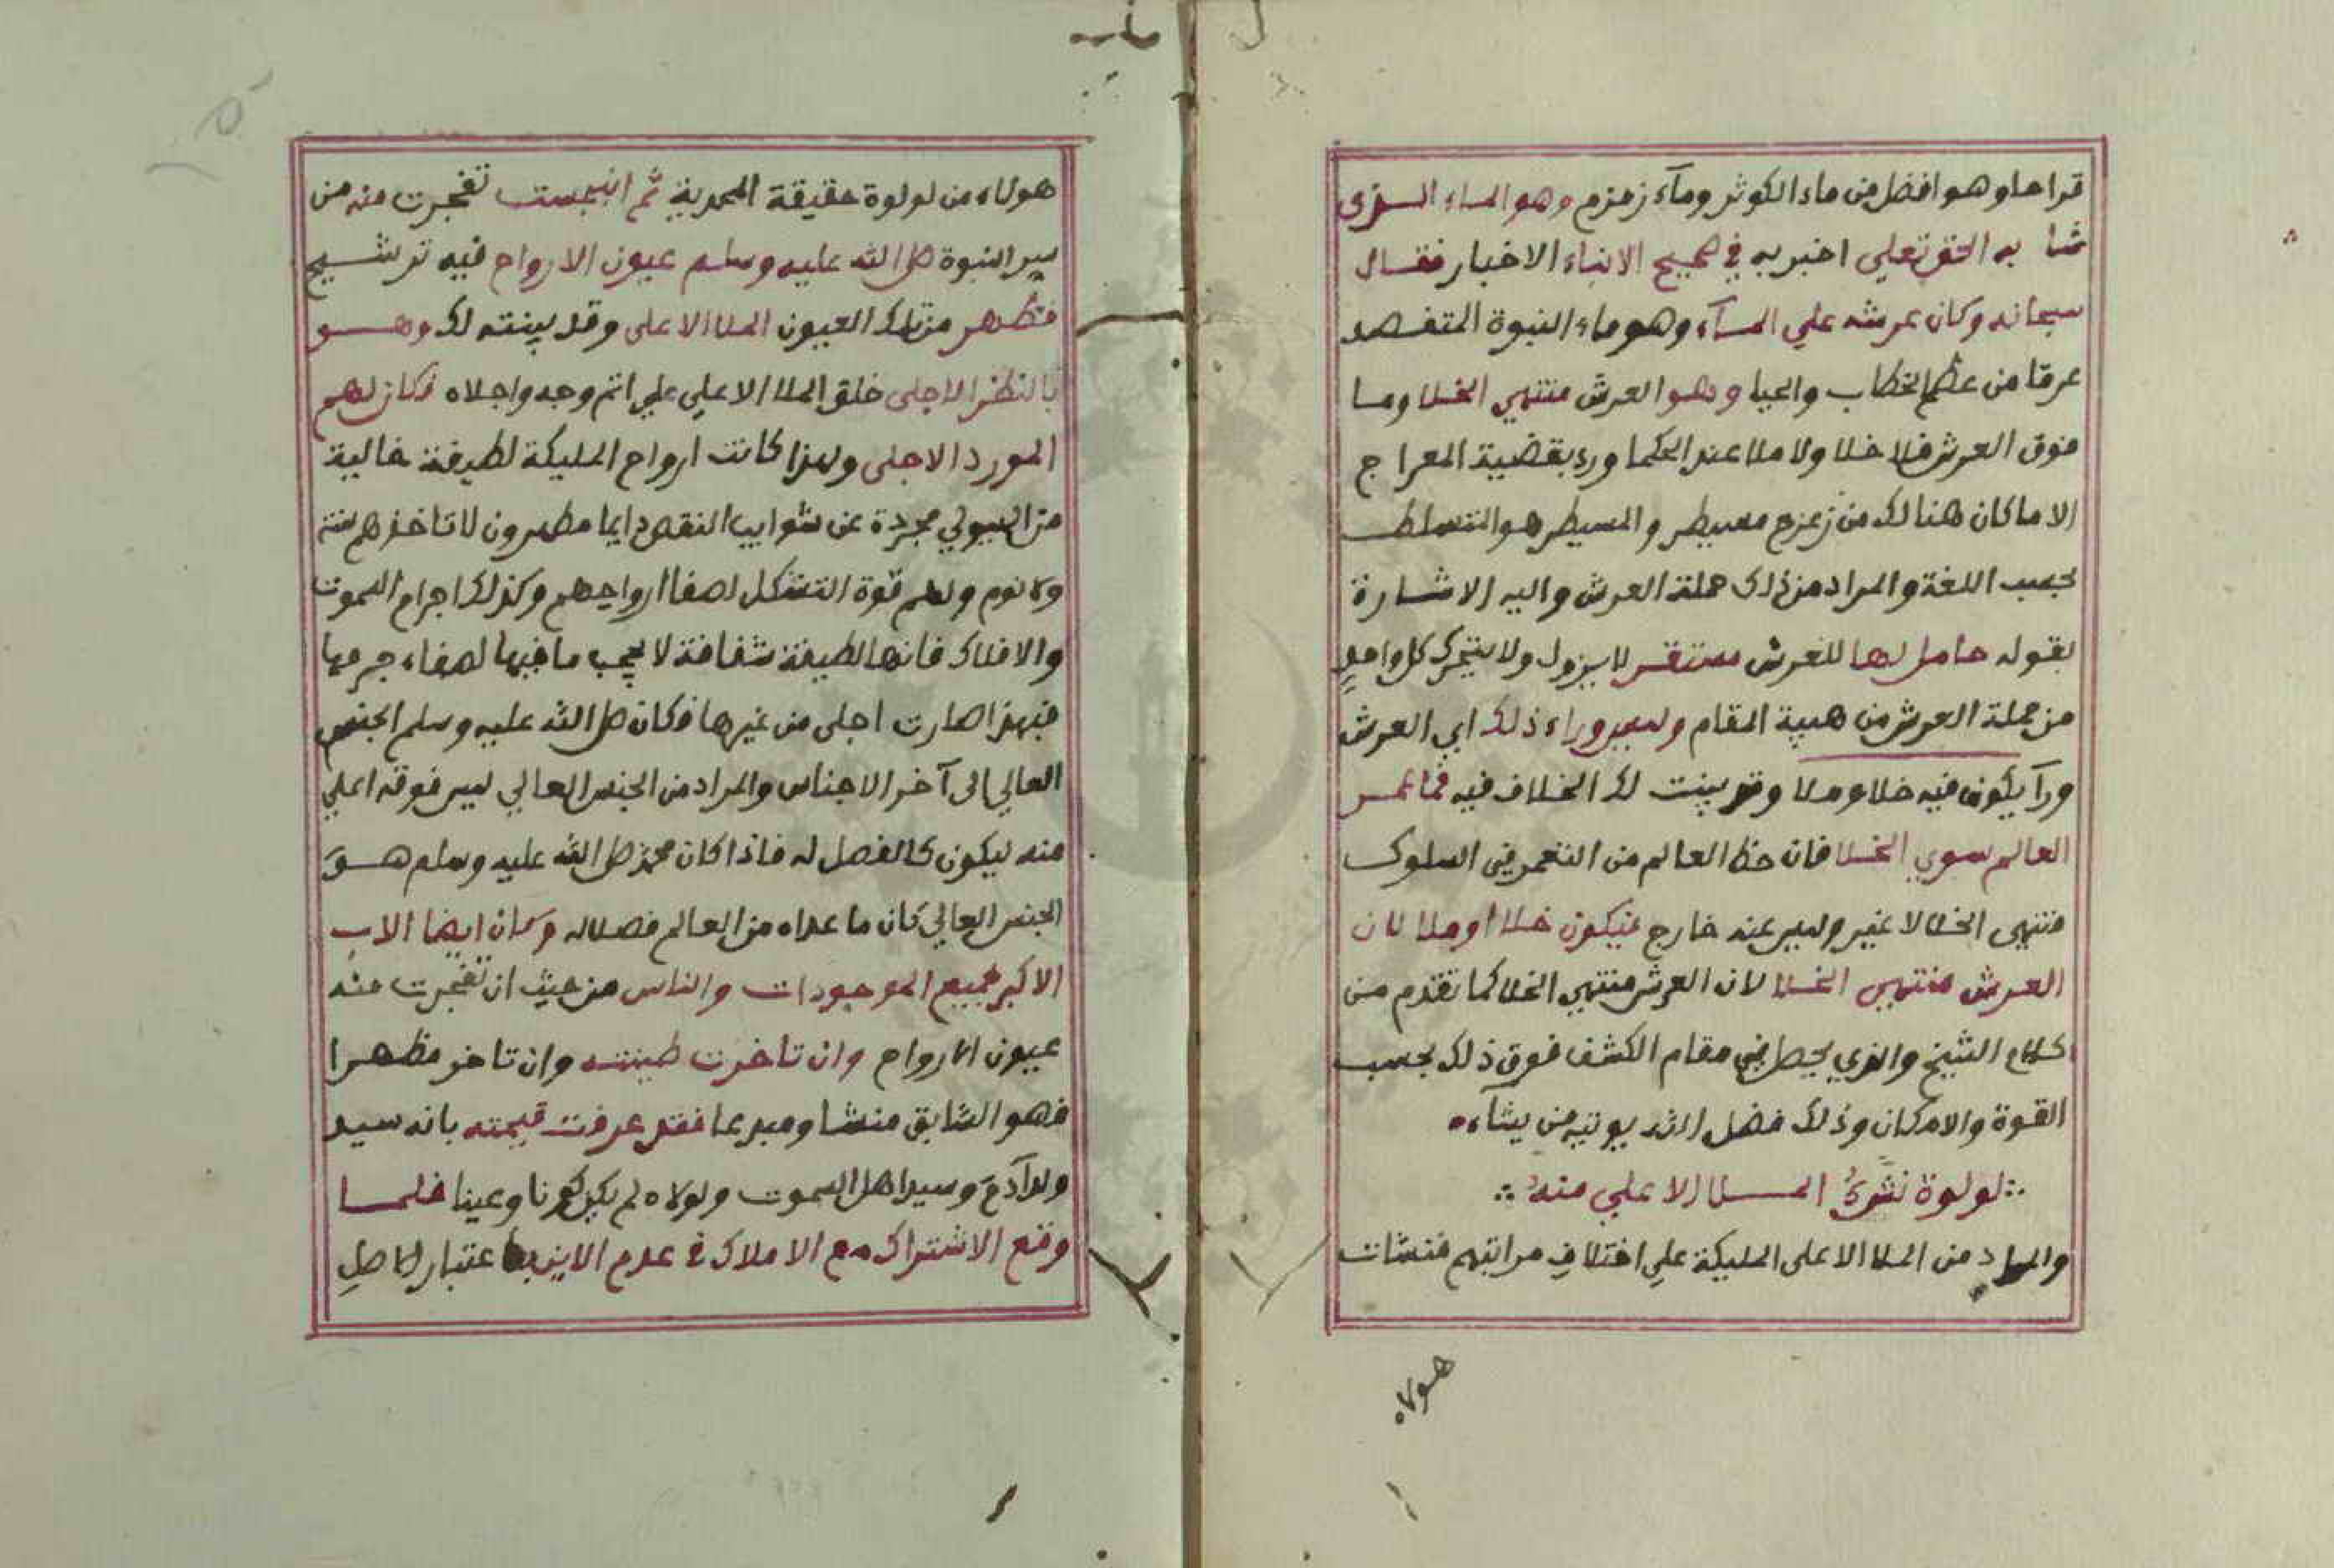 قراحا وهو افضل من ماء الكوثر وماء زمزم وهو الماء الذي
شا به الحق تعلي اخبر به في صحيح الانباء الاخبار فقال
سبحانه وكان عرشه علي المآء وهو ماء النبوة المتفصد
عرقا من عظم الخطاب والحيا وهو العرش منتهي الخلا وما
فوق العرش فلا خلا ولا ملا عند الحكما ورد بقضية المعراج
الا ما كان هنالك من زعزع مسيطر والمسيطر هو المتسلط
بحسب اللغة والمراد من ذلك حملة العرش واليه الاشارة
بقوله حامل لها للعرش مستقر لا يزول ولا يتحرك كل واحد
من حملة العرش من هيبة المقام وليس وراء ذلك اي العرش
ورآ يكون فيه خلا وملا وقد بينت لك الخلاف فيه فما عمر
العالم سوي الخلا فان حظ العالم من التعمر في السلوك
منتهي الخلا لا غير وليس عنه خارج فيكون خلا أو ملا لان
العرش منتهي الخلا لان العرش منتهي الخلا كما تقدم من
كلام الشيخ والذي يحصل في مقام الكشف فوق ذلك بحسب
القوة والامكان وذلك فضل الله يوتيه من يشآء
لولوة نشؤ الملا الا علي منه
والمراد من الملا الا على المليكة علي اختلاف مراتبهم فنشات
هولاء
هولاء من لولوة حقيقة المحمدية ثم انبجست تفجرت منه من
سر النبوة صلى الله عليه وسلم عيون الارواح فيه ترشيح
فتظهر من تلك العيون الملا الا على وقد بينته لك وهو
بالنظر الاجلى خلق الملا الا علي علي اتم وجه واجلاه فكان لهم
المورد الاحلى ولهذا كانت ارواح المليكة لطيفة خالية
من الهيولي مجردة عن شوايب النقص دايما مطهرون لا تاخذهم سنة
ولا نوم ولهم قوة التشكل لصفا ارواحهم وكذلك اجرام السموت
والافلاك فانها لطيفة شفافة لا يحجب ما فيها لصفاء جرمها
فبهذا صارت اجلى من غيرها فكان صلى الله عليه وسلم الجنس
العالي الى آخر الاجناس والمراد من الجنس العالي ليس فوقه اعلي
منه ليكون كالفصل له فاذا كان محمد صلى الله عليه وسلم هو
الجنس العالي كان ما عداه من العالم فصلا له وكان ايضا الاب
الاكبر لجميع الموجودات والناس من حيث ان تفجرت منه
عيون الارواح وان تاخرت طينته وان تاخر مظهرا
فهو السابق منشا ومبدعا فقد عرفت قيمته بانه سيد
ولد آدم وسيد اهل السموت ولولاه لم يكن كونا وعينا فلما
وقع الاشتراك مع الاملاك في عدم الاين باعتبار الاصل